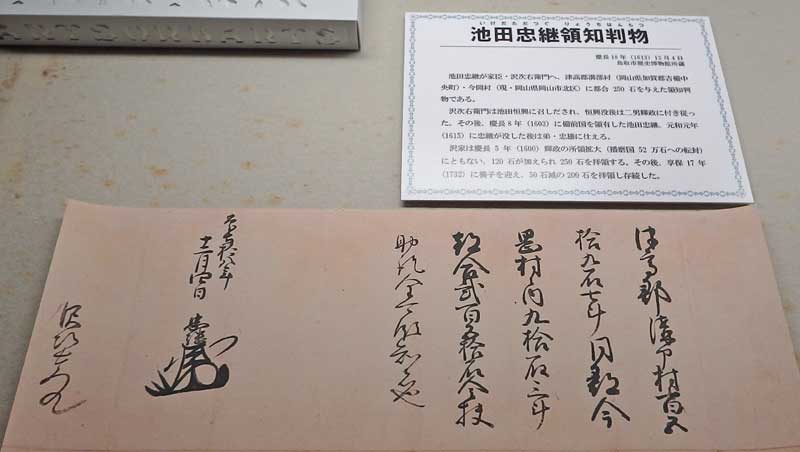 いけだただつぐりょうちはんもつ
池田忠継領知判物
慶長18年（1613）12月4日
鳥取市歴史博物館所蔵
池田忠継が家臣・沢次右衛門へ、津高郡溝部村（岡山県加賀郡吉備中
央町）・今岡村（現・岡山県岡山市北区）に都合250石を与えた領知判
物である。
沢次右衛門は池田恒興に召しだされ、恒興没後は二男輝政に付き従っ
た。その後、慶長8年（1603）に備前国を領有した池田忠継、元和元年
（1615）に忠継が没した後は弟・忠雄に仕える。
沢家は慶長5年（1600）輝政の所領拡大（播磨国52万石への転封）
にともない、120石が加えられ250石を拝領する。その後、享保17年
（1732）に養子を迎え、50石減の200石を拝領し存続した。
津高郡溝部村百五
拾九石七斗同郡今
岡村内九拾石三斗
都合弐百五拾石令扶
助訖全可領知者也
慶長拾八年
十二月四日 忠継